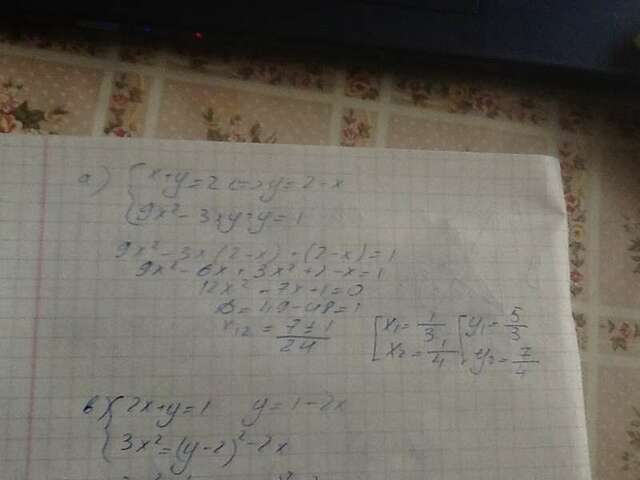 а) { x+y=2 <=> y=2-x
9x² - 3xy+y=1
9x² - 3x(2-x) + (2-x)=1
9x² - 6x + 3x² + 2 - x = 1
12x² - 7x + 1 = 0
D = 49 - 48 = 1
x₁₂ = 7±1/24
[ x₁ = 1/3 [ y₁ = 5/3
x₂ = 1/4 y₂ = 7/4
в) { 2x+y=1 y=1-2x
3x² = (y-2)² - 2x